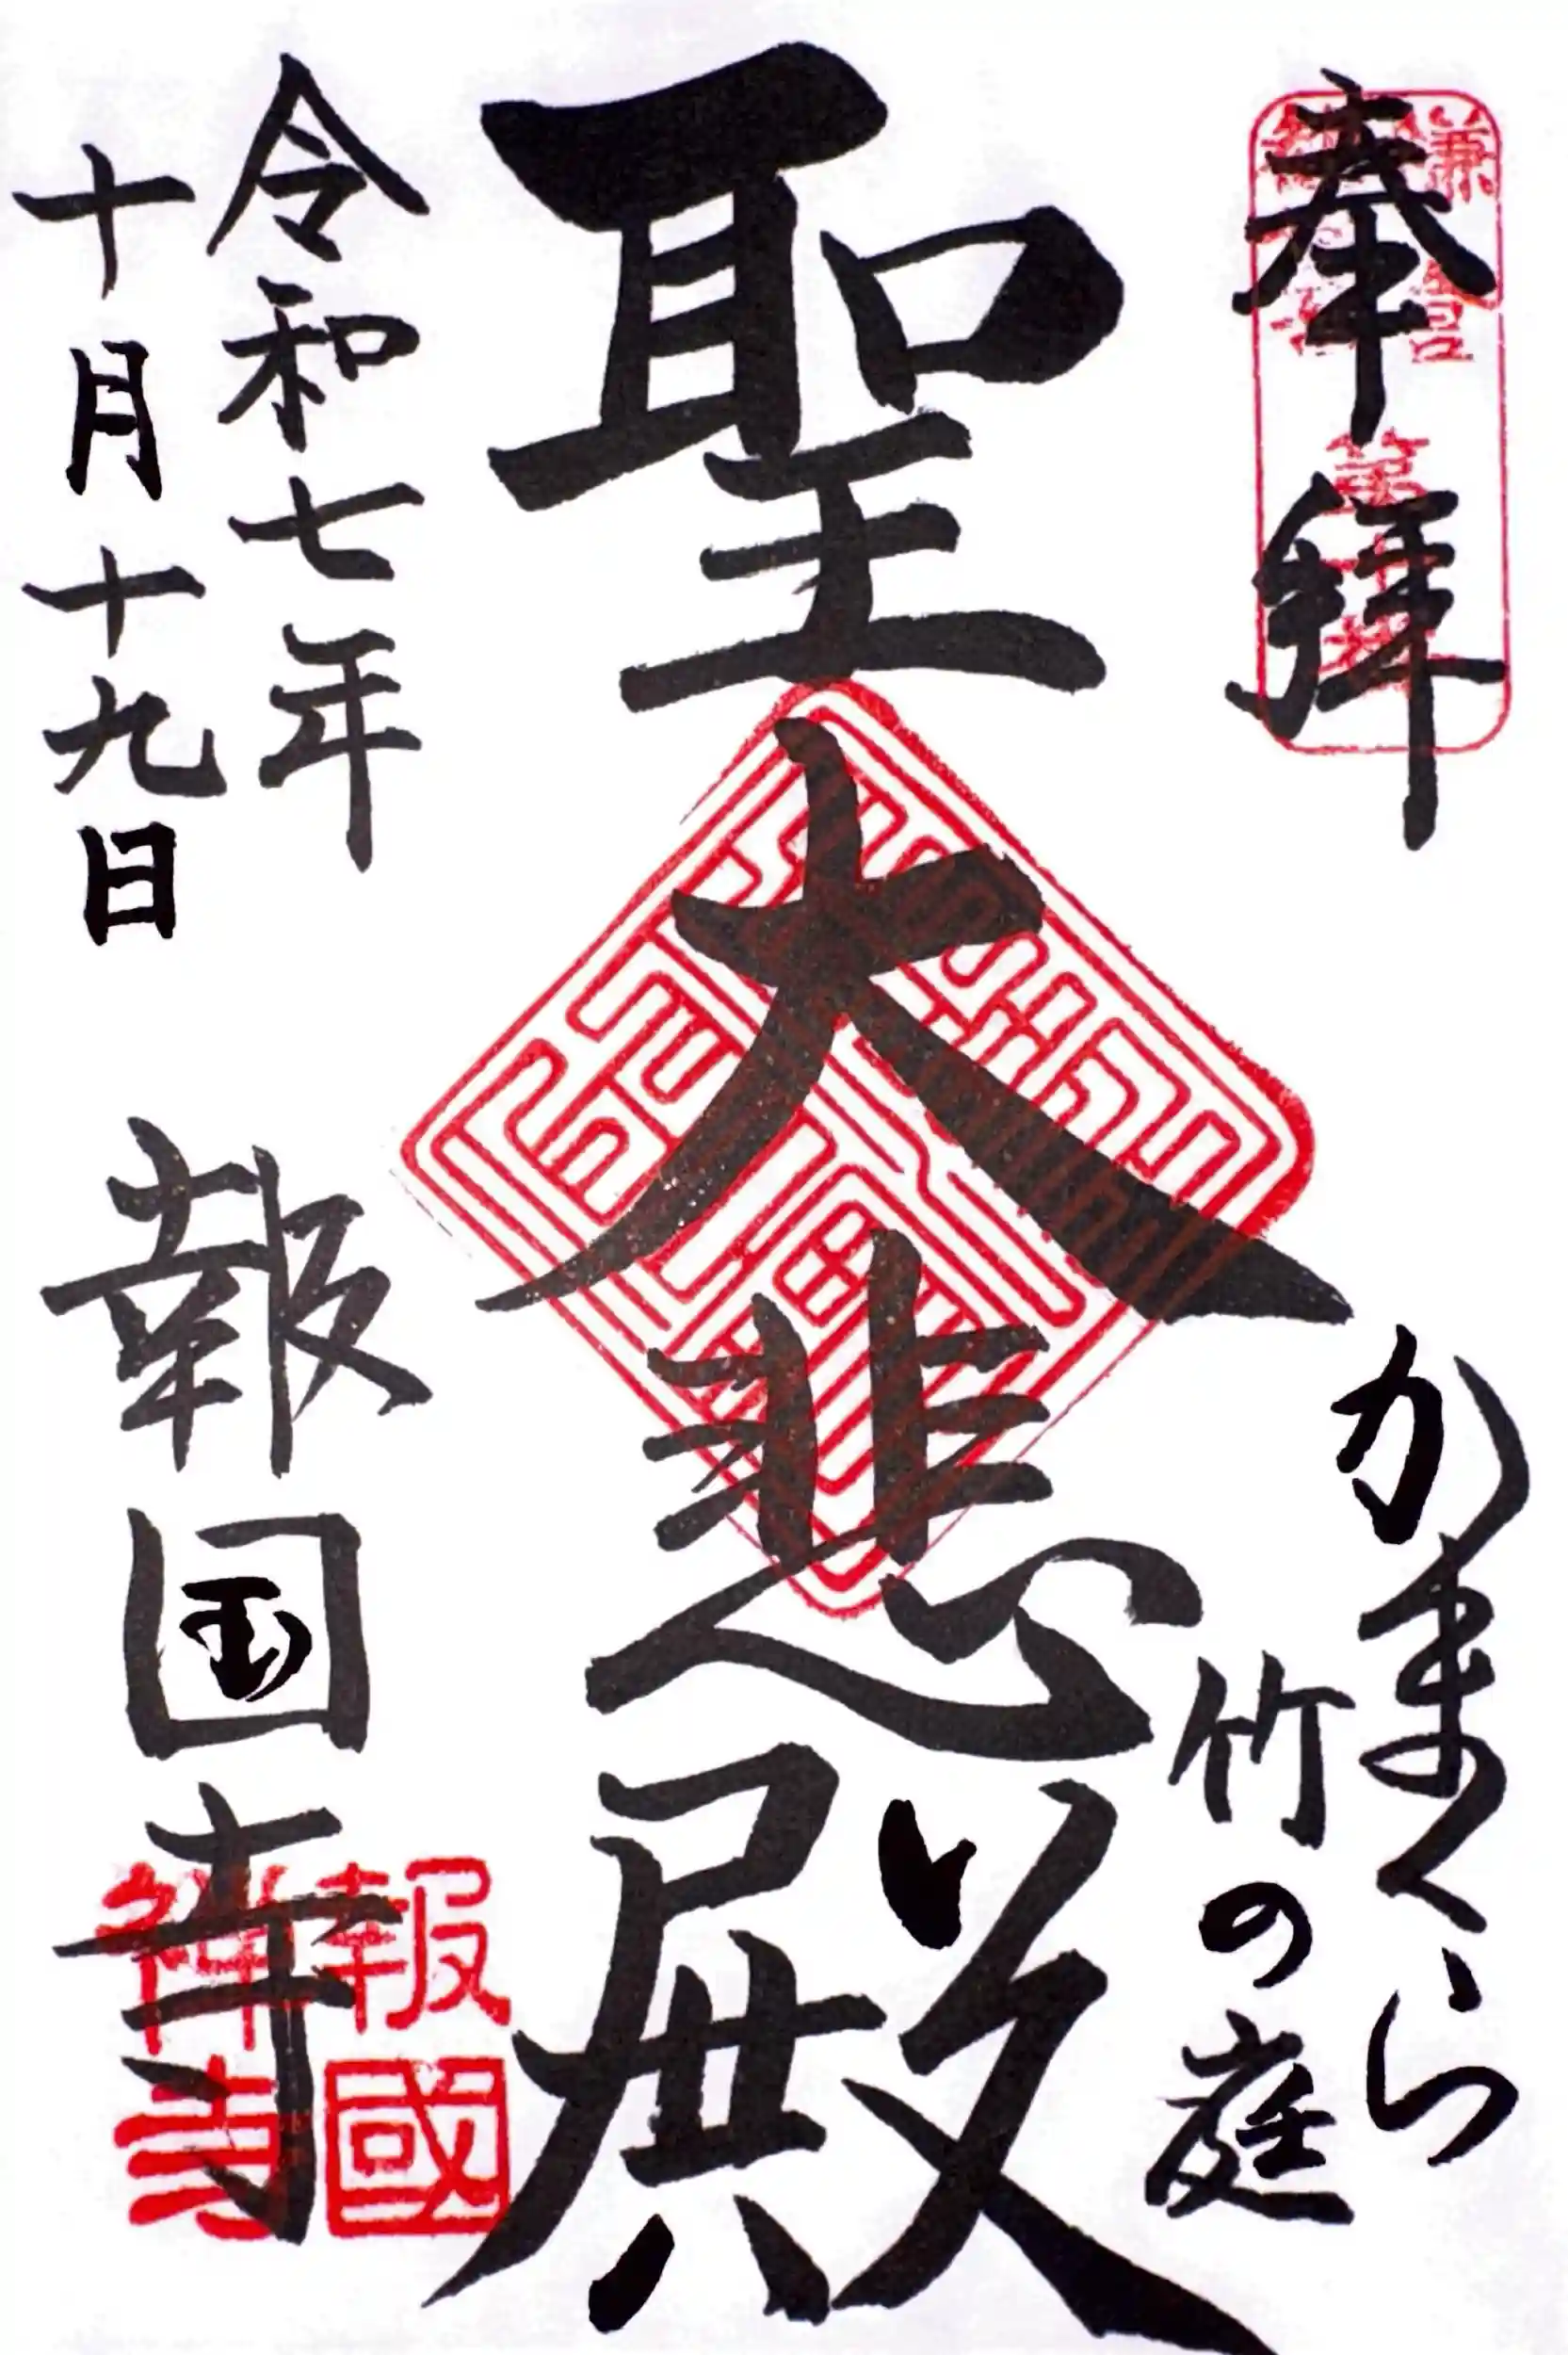 奉拝
かまくら
竹の庭
聖大悲殿
令和七年
十月十九日
報国寺
報國
禅寺